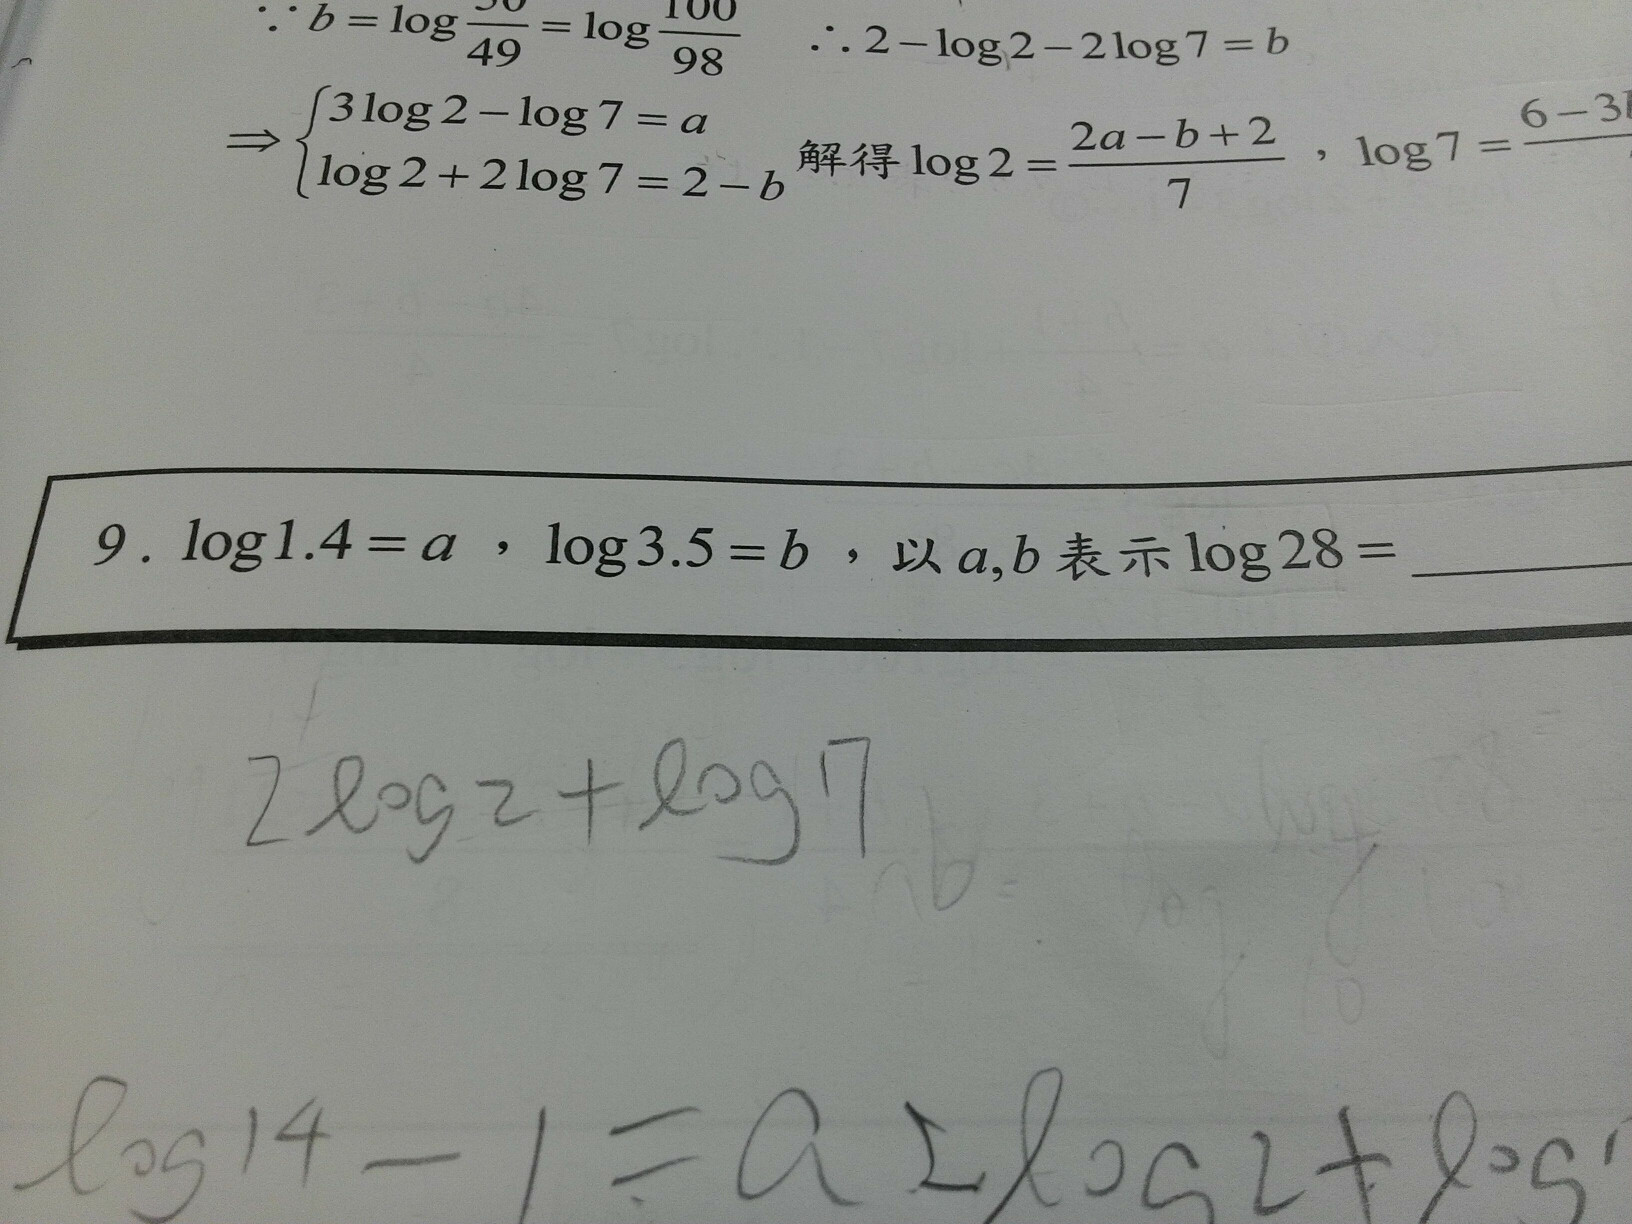 ∵ b = log 50/49 = log 100/98 ∴ 2 − log 2 − 2 log 7 = b
⇒ { 3 log 2 − log 7 = a
log 2 + 2 log 7 = 2 − b 解得 log 2 = (2a − b + 2)/7 , log 7 = 6 − 3
9. log 1.4 = a , log 3.5 = b , 以 a, b 表示 log 28 = ______
2 log 2 + log 7
log 14 − 1 = a 2 log 2 + log